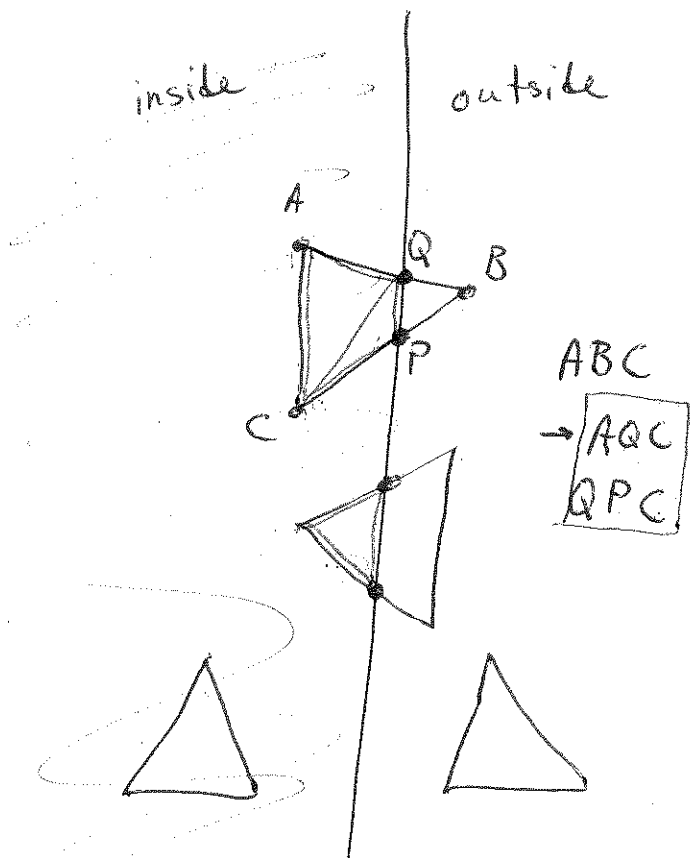 inside outside
A
Q
B
P
C
ABC
→ AQC
QPC